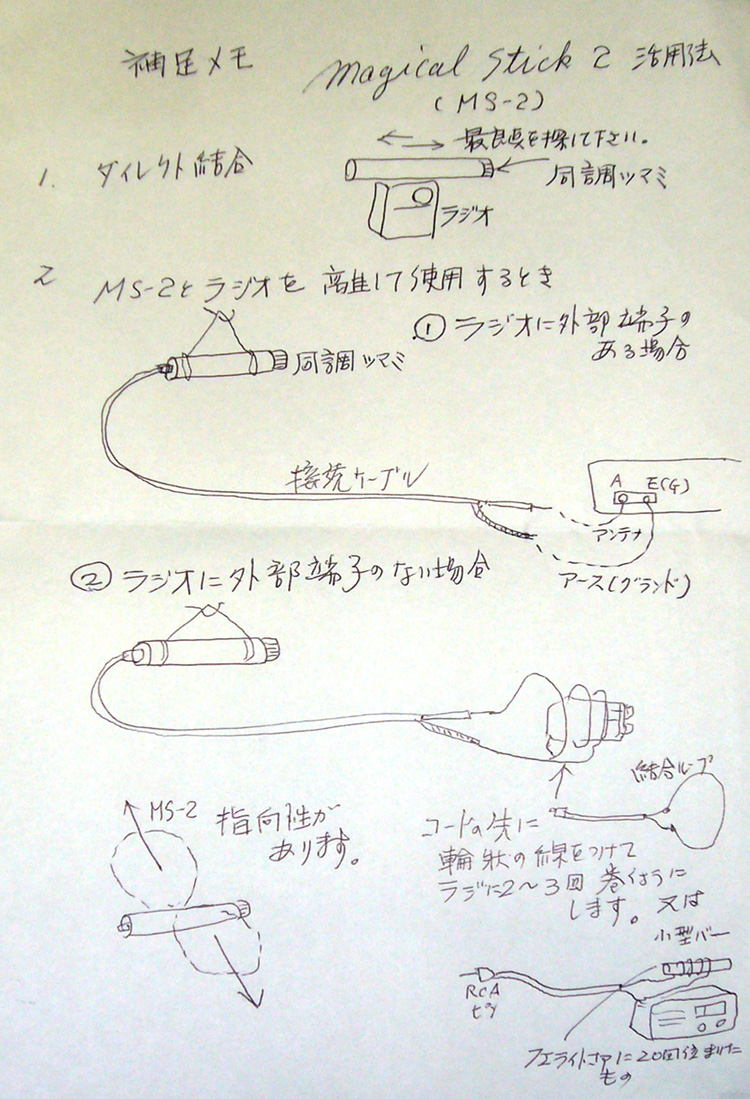 補足メモ Magical Stick 2 活用法
(MS-2)
1. ダイレクト結合
最良点を探して下さい。
同調ツマミ
ラジオ
2 MS-2とラジオを離して使用するとき
① ラジオに外部端子の
ある場合
同調ツマミ
接続ケーブル
A E(G)
アンテナ
アース(グランド)
② ラジオに外部端子のない場合
MS-2
指向性が
あります。
結合ループ
コードの先に
輪状の線をつけて
ラジに2〜3回巻くように
します。又は
小型バー
RCA
ピン
フェライトコアに20回位まいた
もの